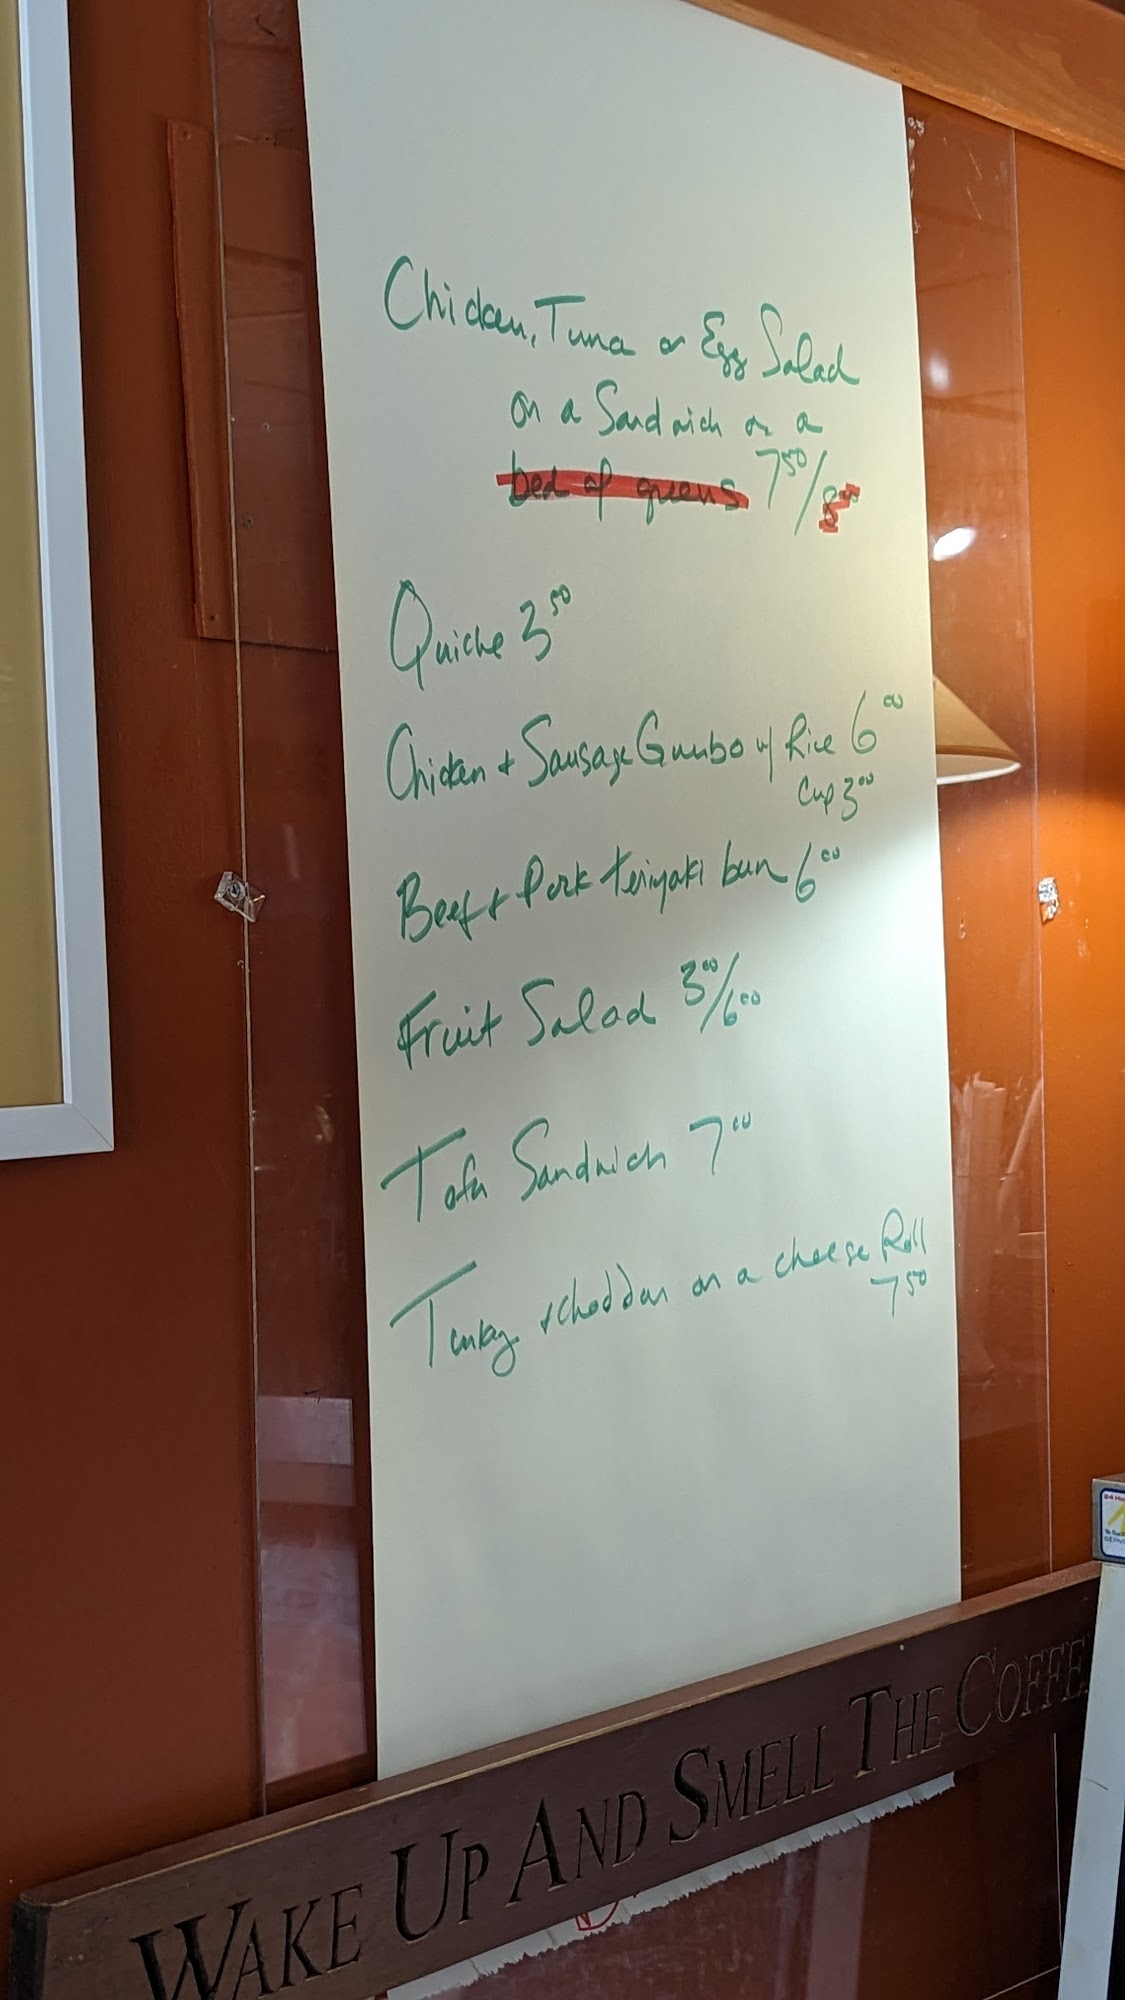 Chicken, Tuna or Egg Salad
on a Sandwich or a
bed of greens 7.50/8.00
Quiche 3.50
Chicken + Sausage Gumbo w/ Rice 6.00
Cup 3.00
Beef + Pork teriyaki bun 6.00
Fruit Salad 3.00/6.00
Tofu Sandwich 7.00
Turkey + cheddar on a cheese Roll
7.50
WAKE UP AND SMELL THE COFFEE